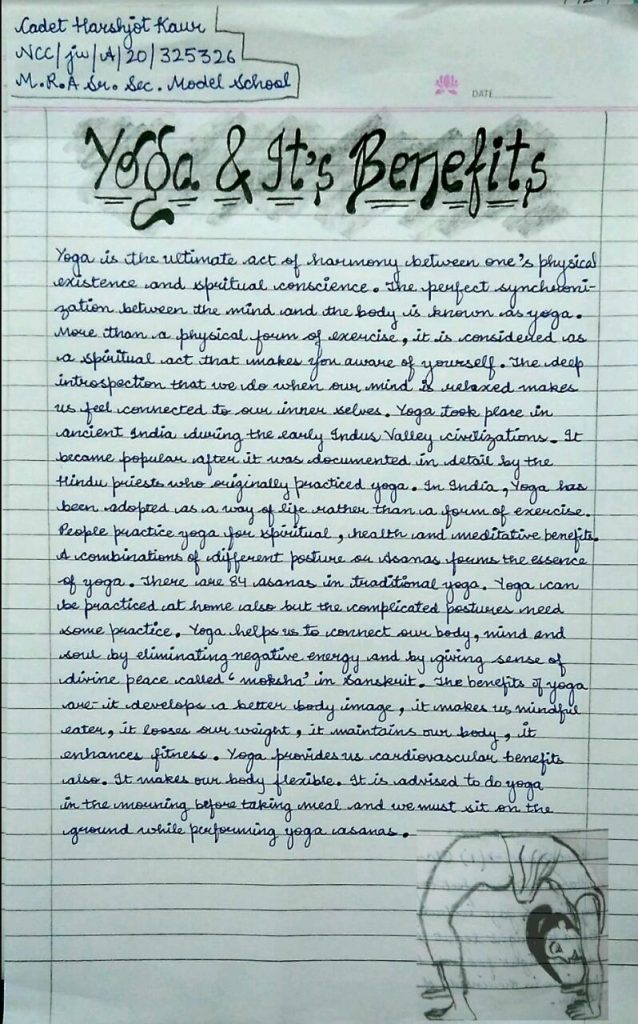 Cadet Harshjot Kaur
NCC/jw/A/20/325326
M.R.A Sr. Sec. Model School
DATE
Yoga & It's Benefits
Yoga is the ultimate act of harmony between one's physical
existence and spritual conscience. The perfect synchroni-
zation between the mind and the body is known as yoga.
More than a physical form of exercise, it is considered as
a spiritual act that makes you aware of yourself. The deep
introspection that we do when our mind is relaxed makes
us feel connected to our inner selves. Yoga took place in
ancient India during the early Indus Valley civilizations. It
became popular after it was documented in detail by the
Hindu priests who originally practiced yoga. In India, Yoga has
been adopted as a way of life rather than a form of exercise.
People practice yoga for spiritual, health and meditative benefits.
A combinations of different posture or Asanas forms the essence
of yoga. There are 84 asanas in traditional yoga. Yoga can
be practiced at home also but the complicated postures need
some practice. Yoga helps us to connect our body, mind and
soul by eliminating negative energy and by giving sense of
divine peace called 'moksha' in Sanskrit. The benefits of yoga
are- it develops a better body image, it makes us mindful
eater, it looses our weight, it maintains our body, it
enhances fitness. Yoga provides us cardiovascular benefits
also. It makes our body flexible. It is advised to do yoga
in the mourning before taking meal and we must sit on the
ground while performing yoga asanas.